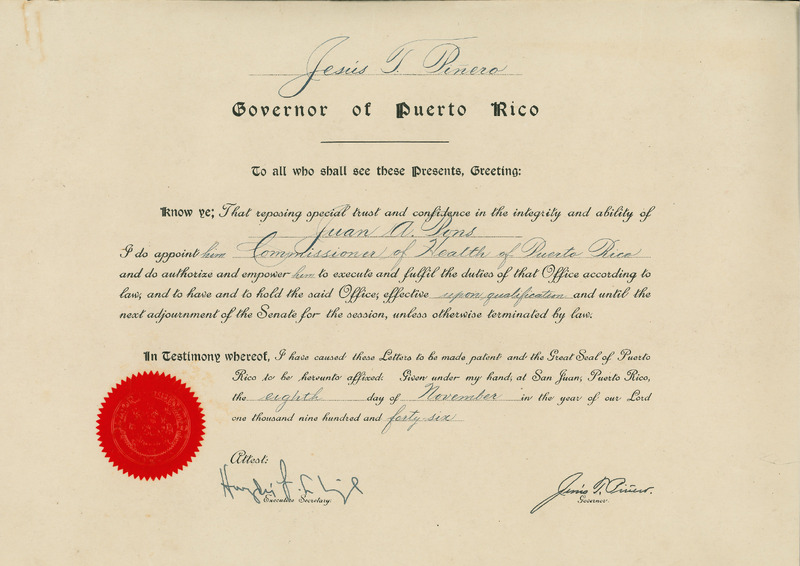 Jesús T. Piñero
Governor of Puerto Rico
To all who shall see these Presents, Greeting:
Know ye; That reposing special trust and confidence in the integrity and ability of
Juan A. Pons
I do appoint him Commissioner of Health of Puerto Rico
and do authorize and empower him to execute and fulfil the duties of that Office according to
law; and to have and to hold the said Office; effective upon qualification and until the
next adjournment of the Senate for the session, unless otherwise terminated by law.
In Testimony whereof, I have caused these Letters to be made patent and the Great Seal of Puerto
Rico to be hereunto affixed. Given under my hand, at San Juan, Puerto Rico,
the eighth day of November in the year of our Lord
one thousand nine hundred and forty-six
Attest:
Executive Secretary.
Jesús T. Piñero.
Governor.